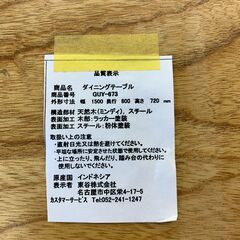 品質表示
商品名 ダイニングテーブル
商品番号 GUY-673
外形寸法 幅 1500 奥行 600 高さ 720 mm
構造部材 天然木(ミンディ)、スチール
表面加工 木部:ラッカー塗装
表面加工 スチール:粉体塗装
取扱い上の注意
・直射日光又は熱を避けてください。
・平坦な場所に安定させた状態で使用してください。
・上に立ったり、飛んだり、踏み台の代わりに
使用しないでください。
原産国 インドネシア
表示者 東谷株式会社
名古屋市中区栄4-17-5
カスタマーサービス Tel:052-241-1247